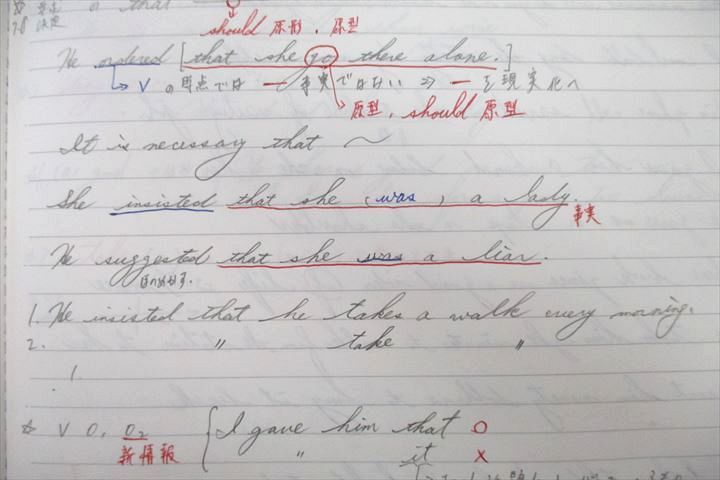 that
7.8 決定
should 原形, 原型
He ordered [that she go there alone.]
→ V の時点では ー 事実ではない ⇒ ー を現実化へ
→ 原型, should 原型
It is necessary that ～
She insisted that she (was) a lady.
事実
He suggested that she was a liar.
ほのめかす.
1. He insisted that he takes a walk every morning.
2. 〃 take 〃
1.
☆ V O1 O2 { I gave him that ○
新情報 〃 it ×